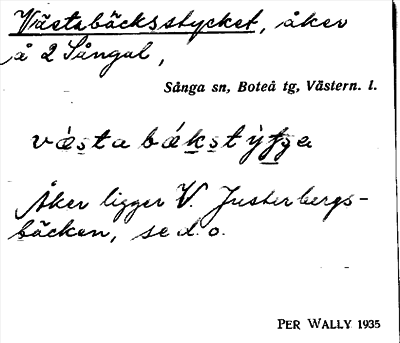 Västabäcksstycket, åker
å 2 Sångal,
Sånga sn, Boteå tg, Västern. l.
Åker ligger V. Justerbergs-
bäcken, se d. o.
PER WALLY 1935